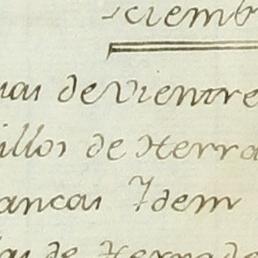 ciemb
uas de vientre
illos de Herra
ancas Ydem
las de Herrade